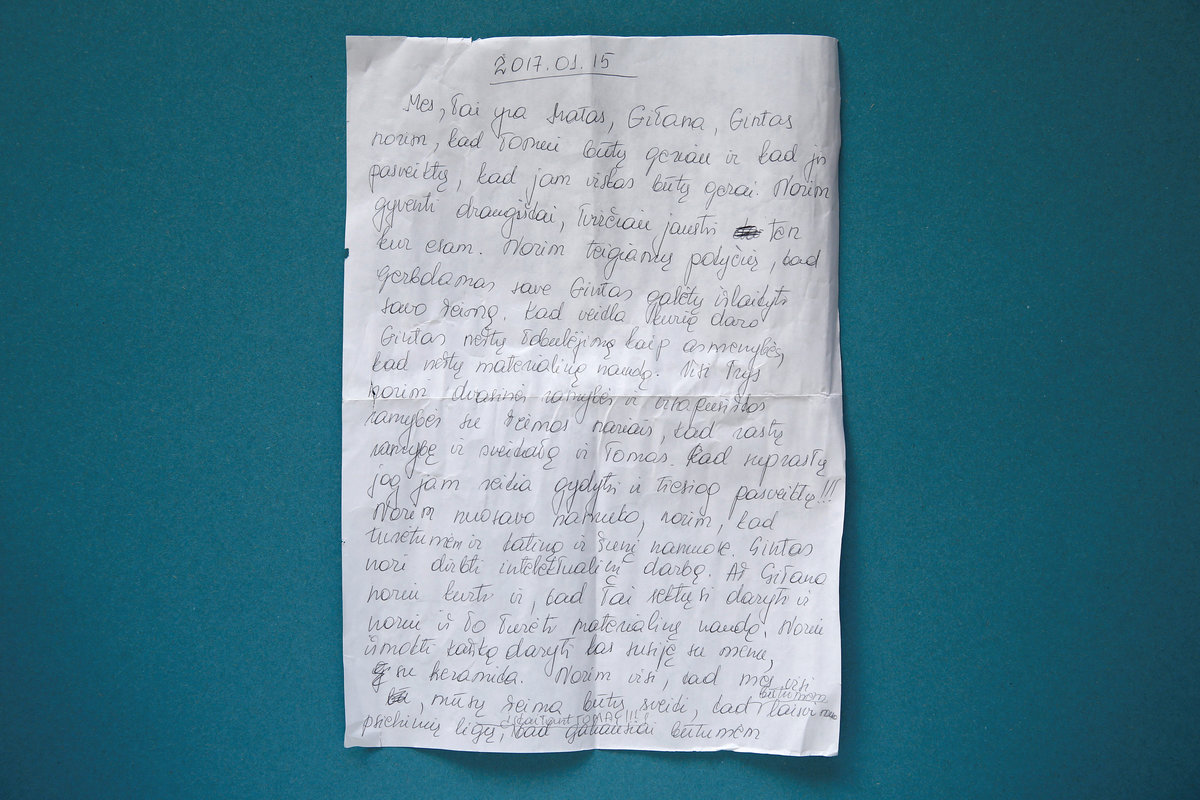 2017.01.15
Mes, tai yra Matas, Gitana, Gintas
norim, kad Tomui būtų geriau ir kad jis
pasveiktų, kad jam viskas būtų gerai. Norim
gyventi draugiškai, tvirčiau jausti ten
kur esam. Norim teigiamų pokyčių, kad
gerbdamas save Gintas galėtų išlaikyti
savo šeimą. Kad veikla kurią daro
Gintas neštų tobulėjimą kaip asmenybės,
kad neštų materialinę naudą. Visi trys
norim dvasinės ramybės ir visapusiškos
ramybės su šeimos nariais, kad rastų
ramybę ir sveikatą ir Tomas. Kad suprastų
jog jam reikia gydytis ir tiesiog pasveiktų!!!
Norim nuosavo namuko, norim, kad
turėtumėm ir katiną ir šunį namuose. Gintas
nori dirbti intelektualinį darbą. Aš Gitana
noriu kurti ir, kad tai sektųsi daryti ir
noriu iš to turėti materialinę naudą. Noriu
išmokti kažką daryti kas susiję su menu,
su keramika. Norim visi, kad mes visi
, mūsų šeima būtų sveiki, kad būtumėm laisvi nuo
psichinių ligų, įskaitant TOMĄ!!! kad galiausiai būtumėm